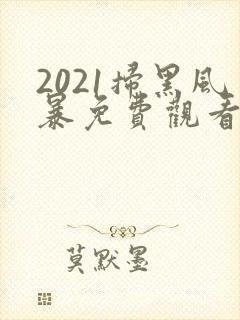 2021掃黑風
暴免費觀看
莫默墨